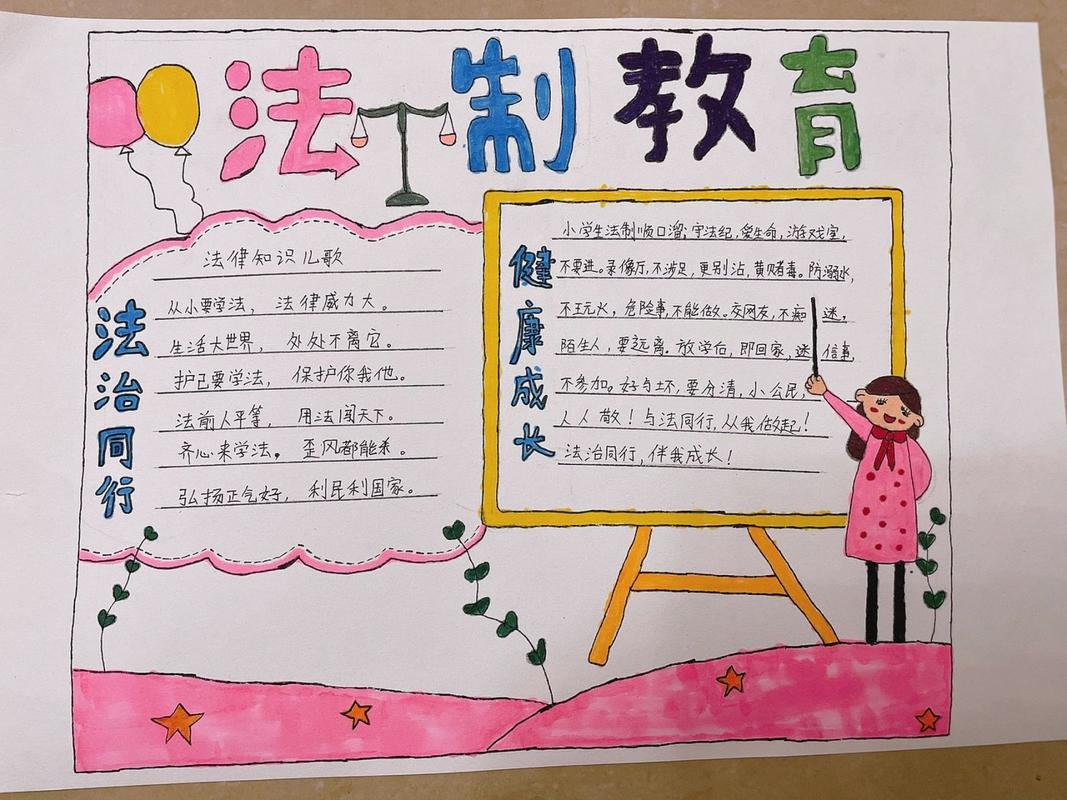 法制教育
法治同行
法律知识儿歌
从小要学法， 法律威力大。
生活大世界， 处处不离它。
护己要学法， 保护你我他。
法前人平等， 用法闯天下。
齐心来学法， 歪风都能杀。
弘扬正气好， 利民利国家。
健康成长
小学生法制顺口溜；守法纪，爱生命，游戏室，
不要进。录像厅，不涉足，更别沾，黄赌毒。防溺水，
不玩火，危险事，不能做。交网友，不痴迷，
陌生人，要远离。放学后，即回家，迷信事，
不参加。好与坏，要分清，小公民，
人人敬！与法同行，从我做起！
法治同行，伴我成长！